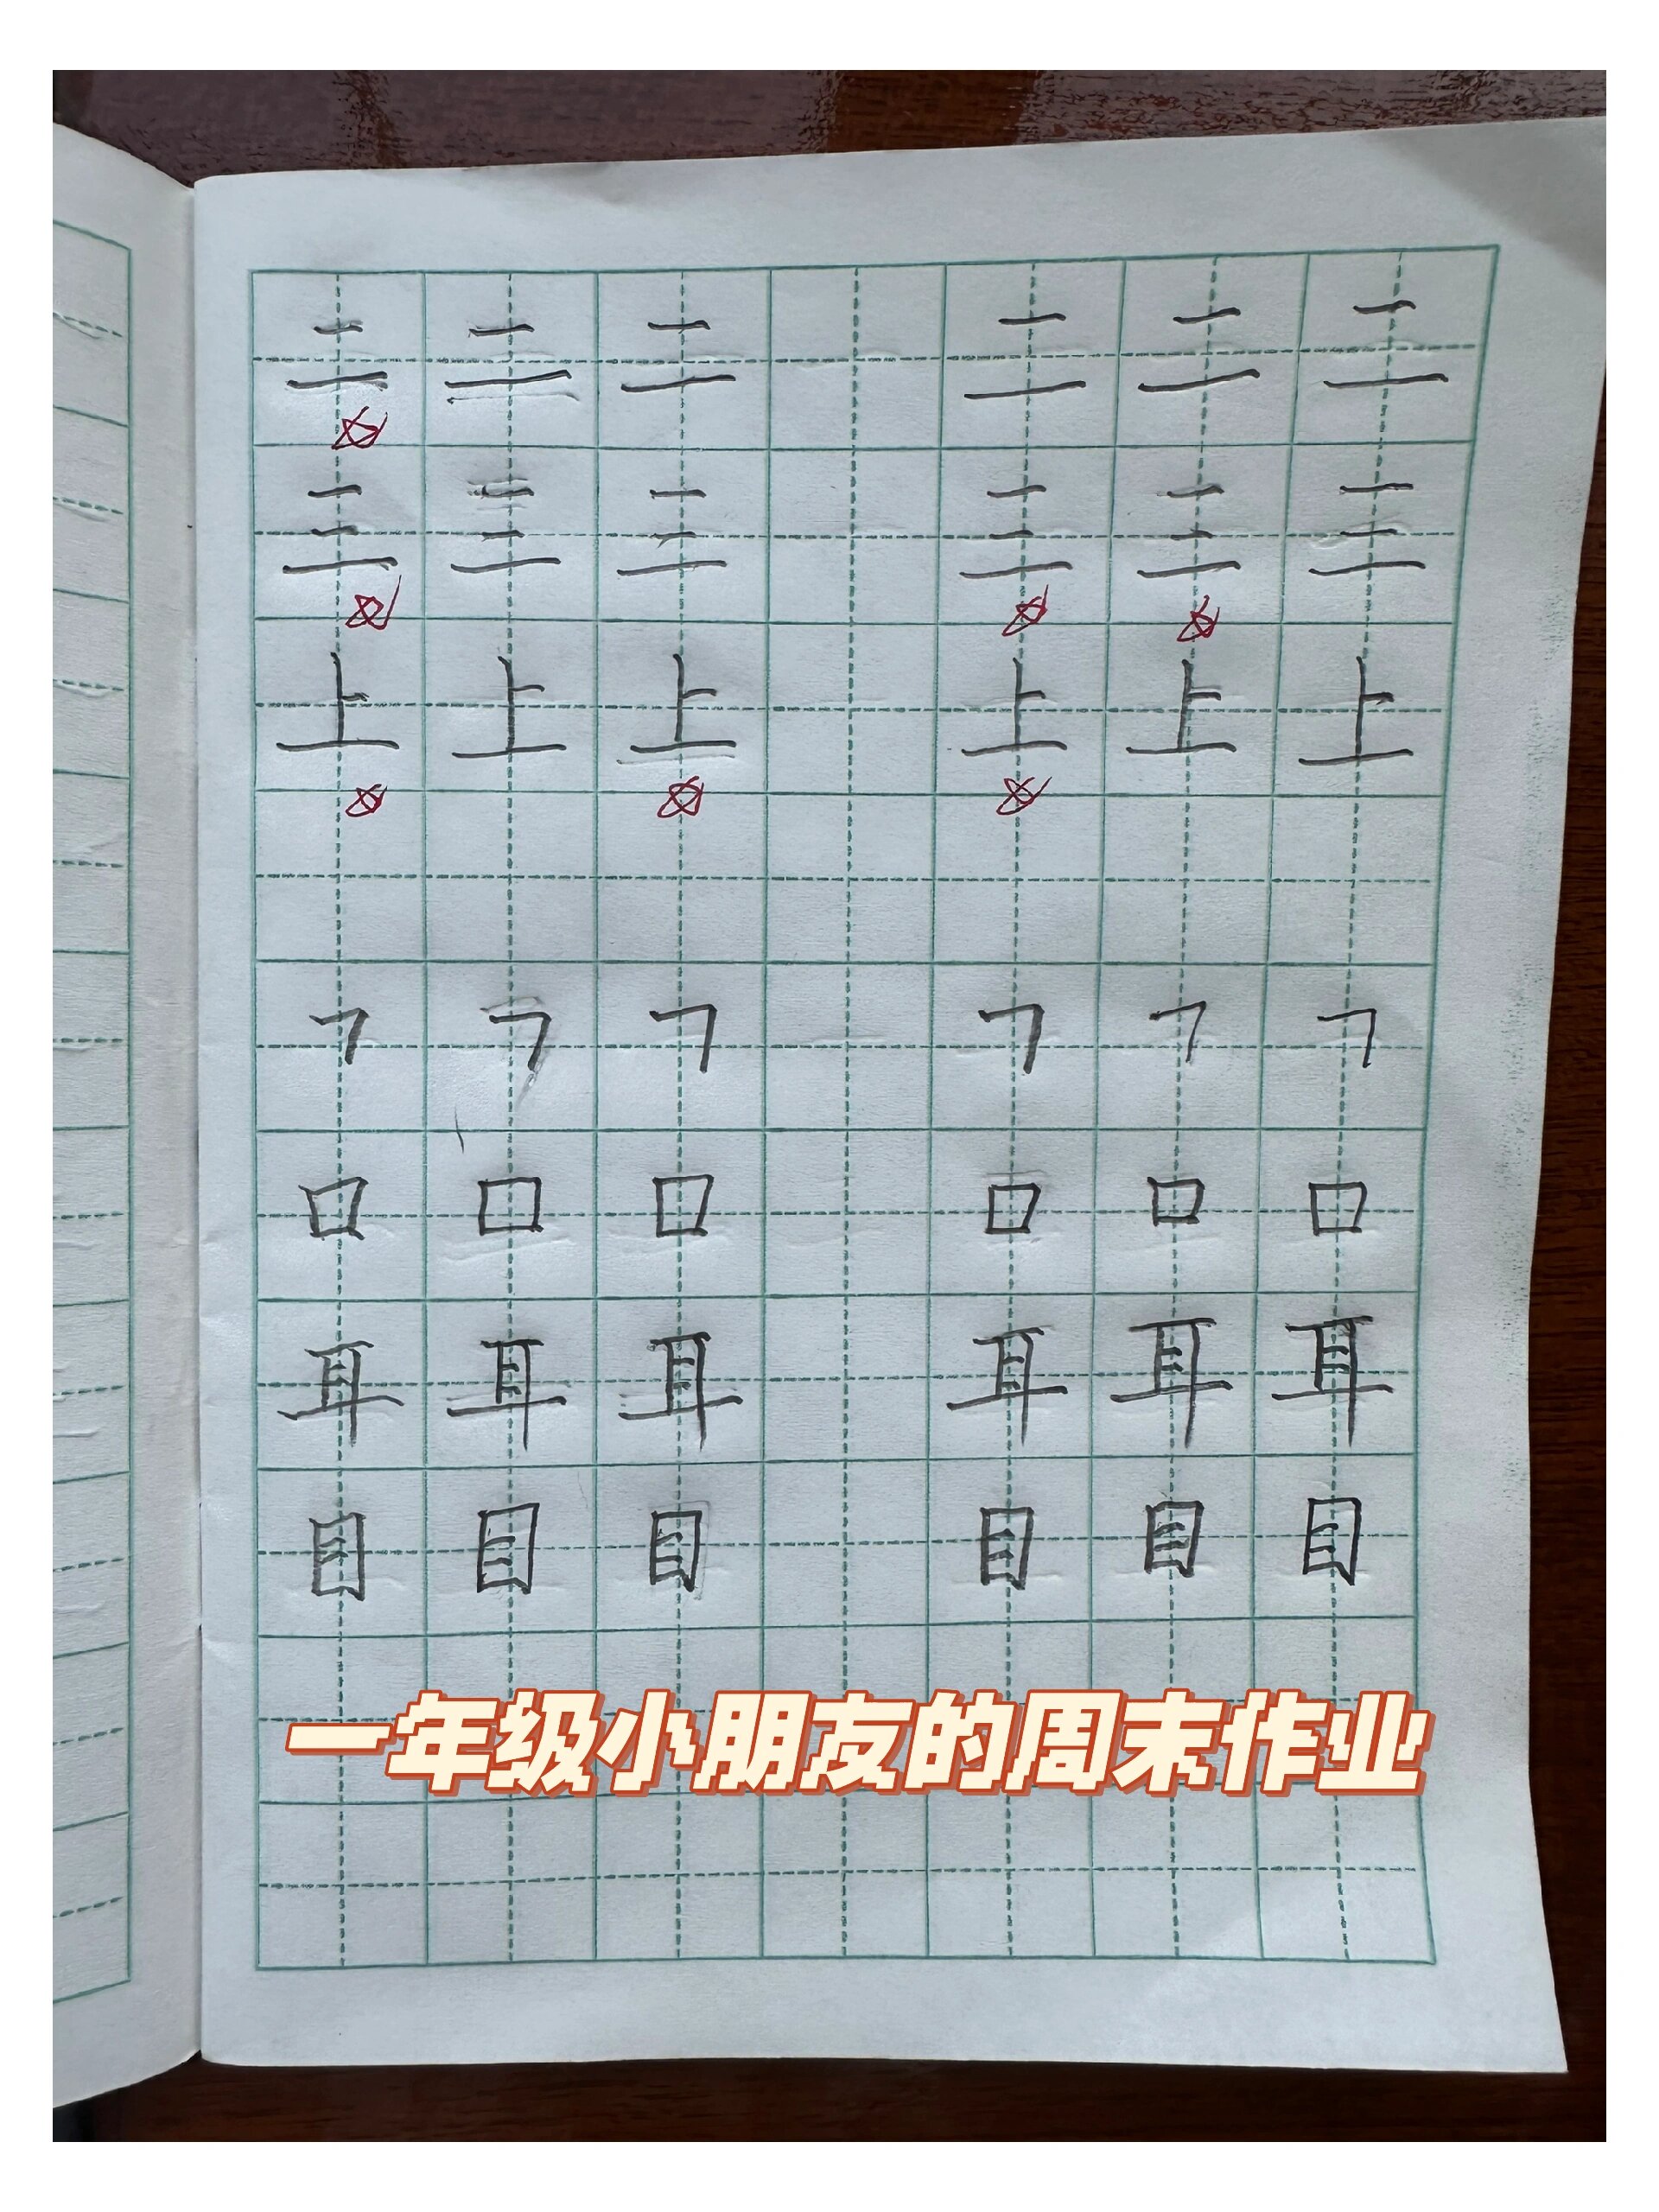 二 二 二 二 二 二
三 三 三 三 三 三
上 上 上 上 上 上
㇕ ㇕ ㇕ ㇕ ㇕ ㇕
口 口 口 口 口 口
耳 耳 耳 耳 耳 耳
目 目 目 目 目 目
一年级小朋友的周末作业